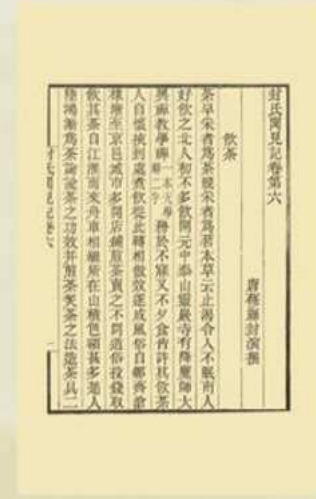 封氏聞見記卷第六
唐 封演撰
飲茶
茶早采者爲茶晚采者爲茗本草云止渴令人不眠南人
好飲之北人初不多飲開元中泰山靈巖寺有降魔師大
興禪教學禪務於不寐又不夕食皆許其飲茶
人自懷挾到處煮飲從此轉相倣效遂成風俗自鄒齊滄
棣漸至京邑城市多開店鋪煎茶賣之不問道俗投錢取
飲其茶自江淮而來舟車相繼所在山積色額甚多楚人
陸鴻漸爲茶論說茶之功效并煎茶炙茶之法造茶具二
封氏聞見記卷六
一